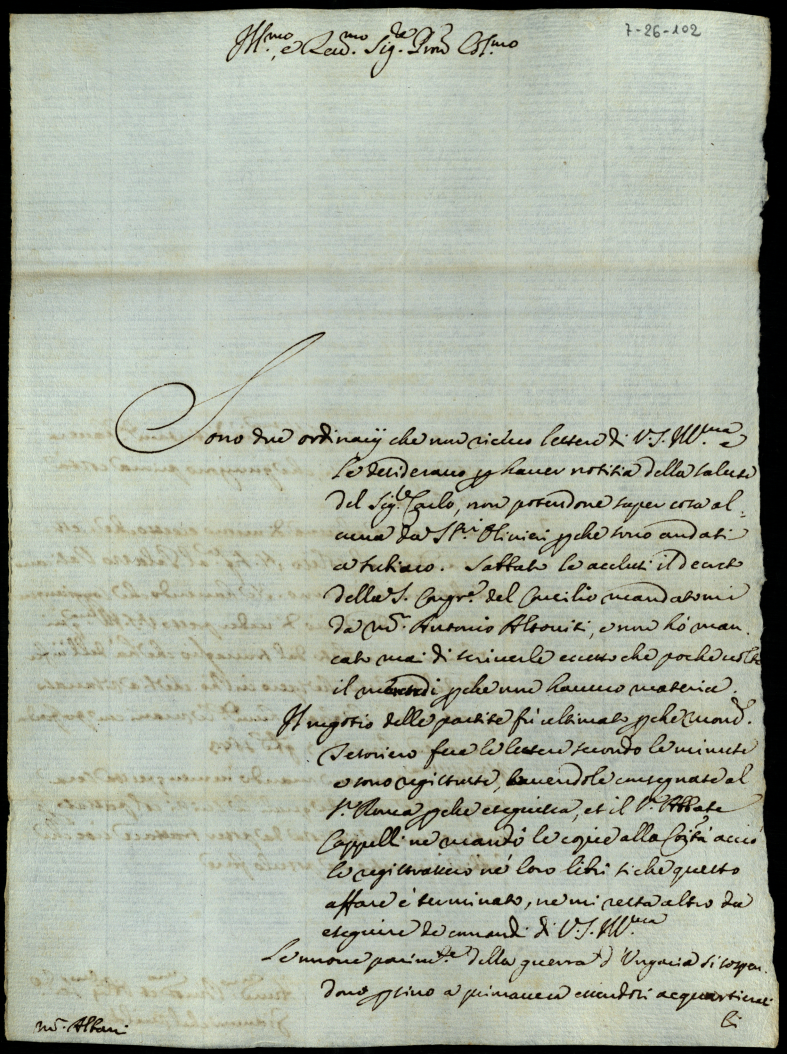 7-26-102
Ill.mo, e Rev.mo Sig.re Pron Col.mo
Sono due ordinarij che non ricevo lettere di V.S. Ill.ma e
le desideravo p haver notitia della salute
del Sig.r Carlo, non potendone saper cosa al-
cuna da SS.ri Olivieri pche sono andati
a Subiaco. Sabbato le acclusi il decreto
della S. Cong.ne del Concilio mandatomi
da m.r Antonio Altoviti, e non hò man-
cato mai di scriverle eccetto che poche volte
il mercordi pche non havevo materia.
Il negotio delle partite fù ultimato pche Mons.
Tesoriero fece le lettere secondo le minute
e sono registrate, havendole consegnate al
S.r pche eseguisca, et il S.r Abbate
Cappelli ne mandò le copie alla Com.tà acciò
le registrassero né loro libri si che questo
affare è terminato, ne mi resta altro da
eseguire de comandi di V.S. Ill.ma
Le nuove della guerra d'Ungaria si sospen-
dono p sino a primavera essendosi acquartierati
li
m.r Albani